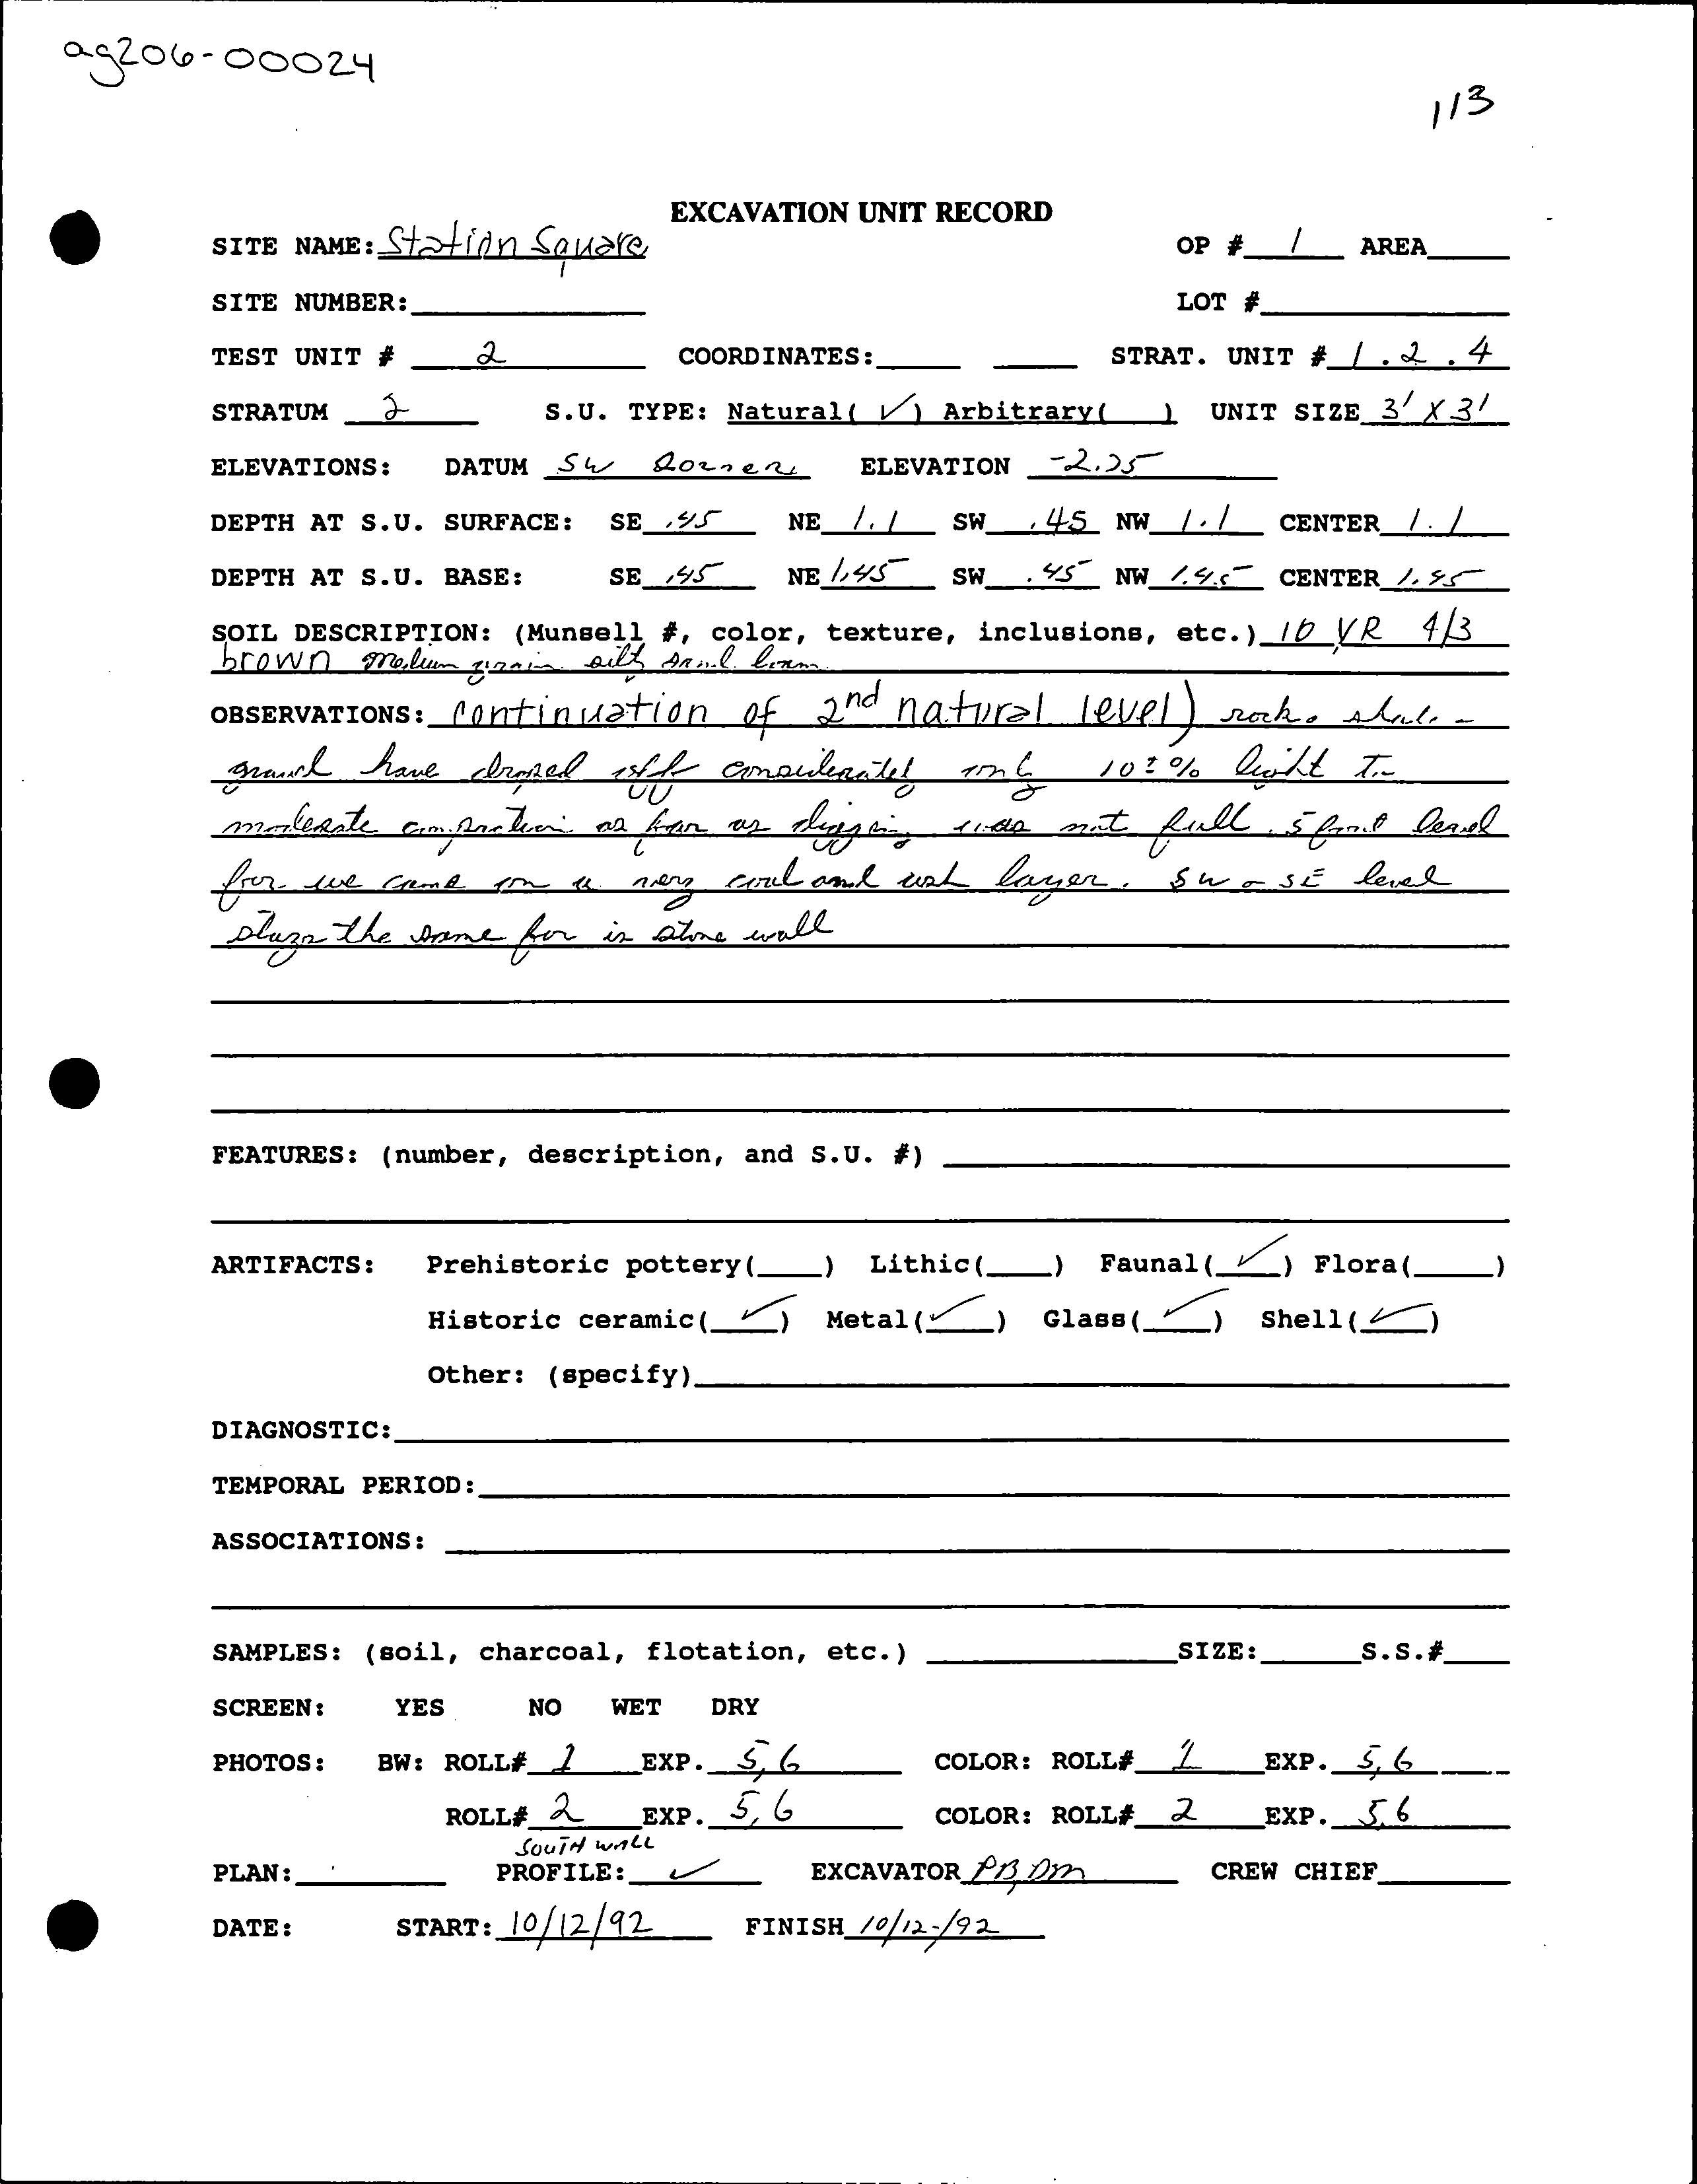 ag206-00024
113
EXCAVATION UNIT RECORD
SITE NAME: Station Square OP # 1 AREA
SITE NUMBER: LOT #
TEST UNIT # 2 COORDINATES: STRAT. UNIT # 1.2.4
STRATUM 2 S.U. TYPE: Natural( ✓ ) Arbitrary( ) UNIT SIZE 3' X 3'
ELEVATIONS: DATUM SW Corner ELEVATION -2.25
DEPTH AT S.U. SURFACE: SE .45 NE 1.1 SW .45 NW 1.1 CENTER 1.1
DEPTH AT S.U. BASE: SE .45 NE 1.45 SW .45 NW 1.45 CENTER 1.45
SOIL DESCRIPTION: (Munsell #, color, texture, inclusions, etc.) 10 YR 4/3
brown medium grain silty sand loam
OBSERVATIONS: continuation of 2nd natural level) rock
gravel have droped off considerately only 10±% light To
moderate compaction as far as digging was not full .5 foot level
for we came on a new coal and ash layer. SW - SE level
stays the same for is stone wall
FEATURES: (number, description, and S.U. #)
ARTIFACTS: Prehistoric pottery( ) Lithic( ) Faunal( ✓ ) Flora( )
Historic ceramic( ✓ ) Metal( ✓ ) Glass( ✓ ) Shell( ✓ )
Other: (specify)
DIAGNOSTIC:
TEMPORAL PERIOD:
ASSOCIATIONS:
SAMPLES: (soil, charcoal, flotation, etc.) SIZE: S.S.#
SCREEN: YES NO WET DRY
PHOTOS: BW: ROLL# 1 EXP. 5,6 COLOR: ROLL# 1 EXP. 5,6
ROLL# 2 EXP. 5,6 COLOR: ROLL# 2 EXP. 5,6
SOUTH WALL
PLAN: PROFILE: ✓ EXCAVATOR PB, DM CREW CHIEF
DATE: START: 10/12/92 FINISH 10/12/92